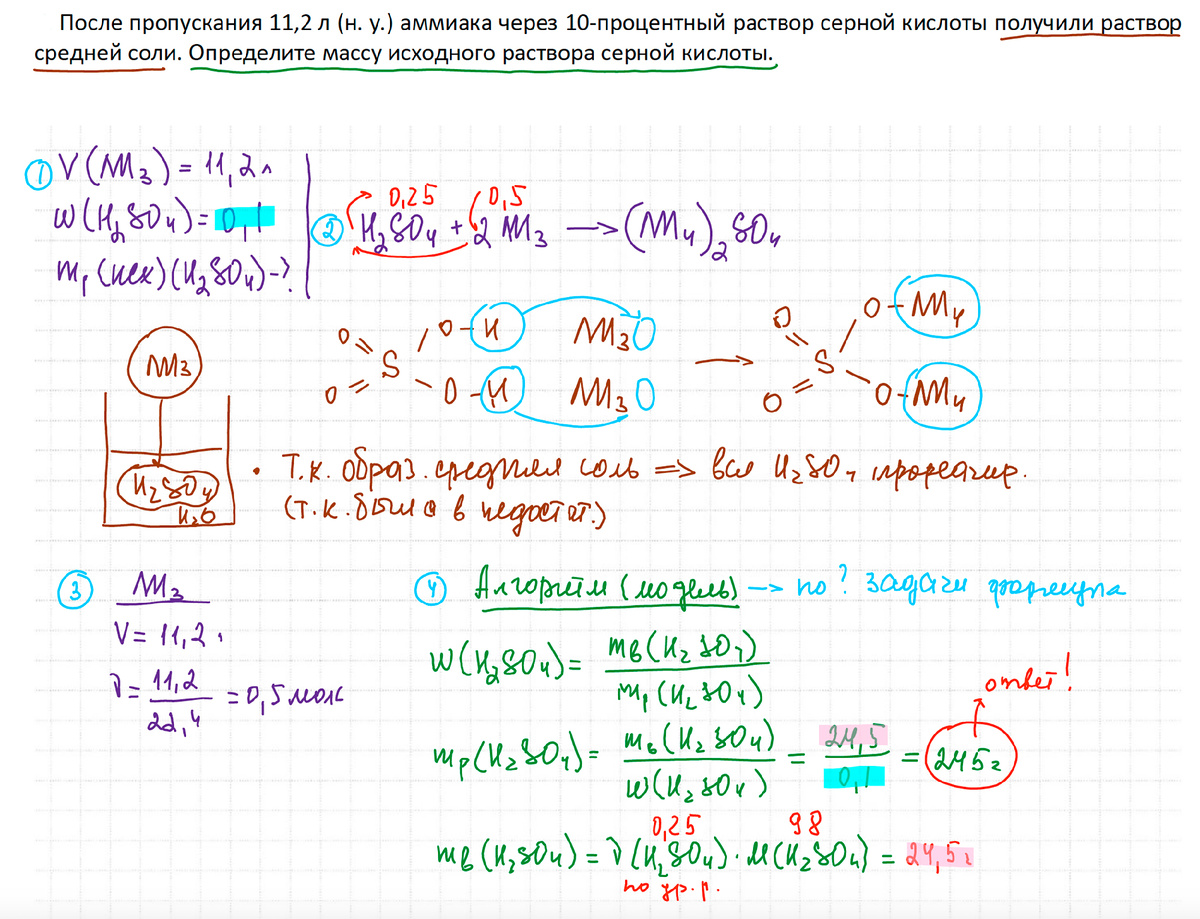 После пропускания 11,2 л (н. у.) аммиака через 10-процентный раствор серной кислоты получили раствор
средней соли. Определите массу исходного раствора серной кислоты.
① V(NH₃) = 11,2 л
w(H₂SO₄) = 0,1
mр(исх)(H₂SO₄)-?
0,25 0,5
② H₂SO₄ + 2 NH₃ —> (NH₄)₂SO₄
NH₃
H₂SO₄
H₂O
O O-H NH₃O
S
O O-H NH₃O
→
O O-NH₄
S
O O-NH₄
• Т.к. образ. средняя соль => вся H₂SO₄ прореагир.
(т.к. была в недостат.)
③ NH₃
V = 11,2 л
ν = 11,2 / 22,4 = 0,5 моль
④ Алгоритм (модель) —> по ? задачи формула
w(H₂SO₄) = mв(H₂SO₄) / mр(H₂SO₄)
ответ!
mр(H₂SO₄) = mв(H₂SO₄) / w(H₂SO₄) = 24,5 / 0,1 = 245 г
0,25 98
mв(H₂SO₄) = ν(H₂SO₄) · M(H₂SO₄) = 24,5 г
по ур. р.